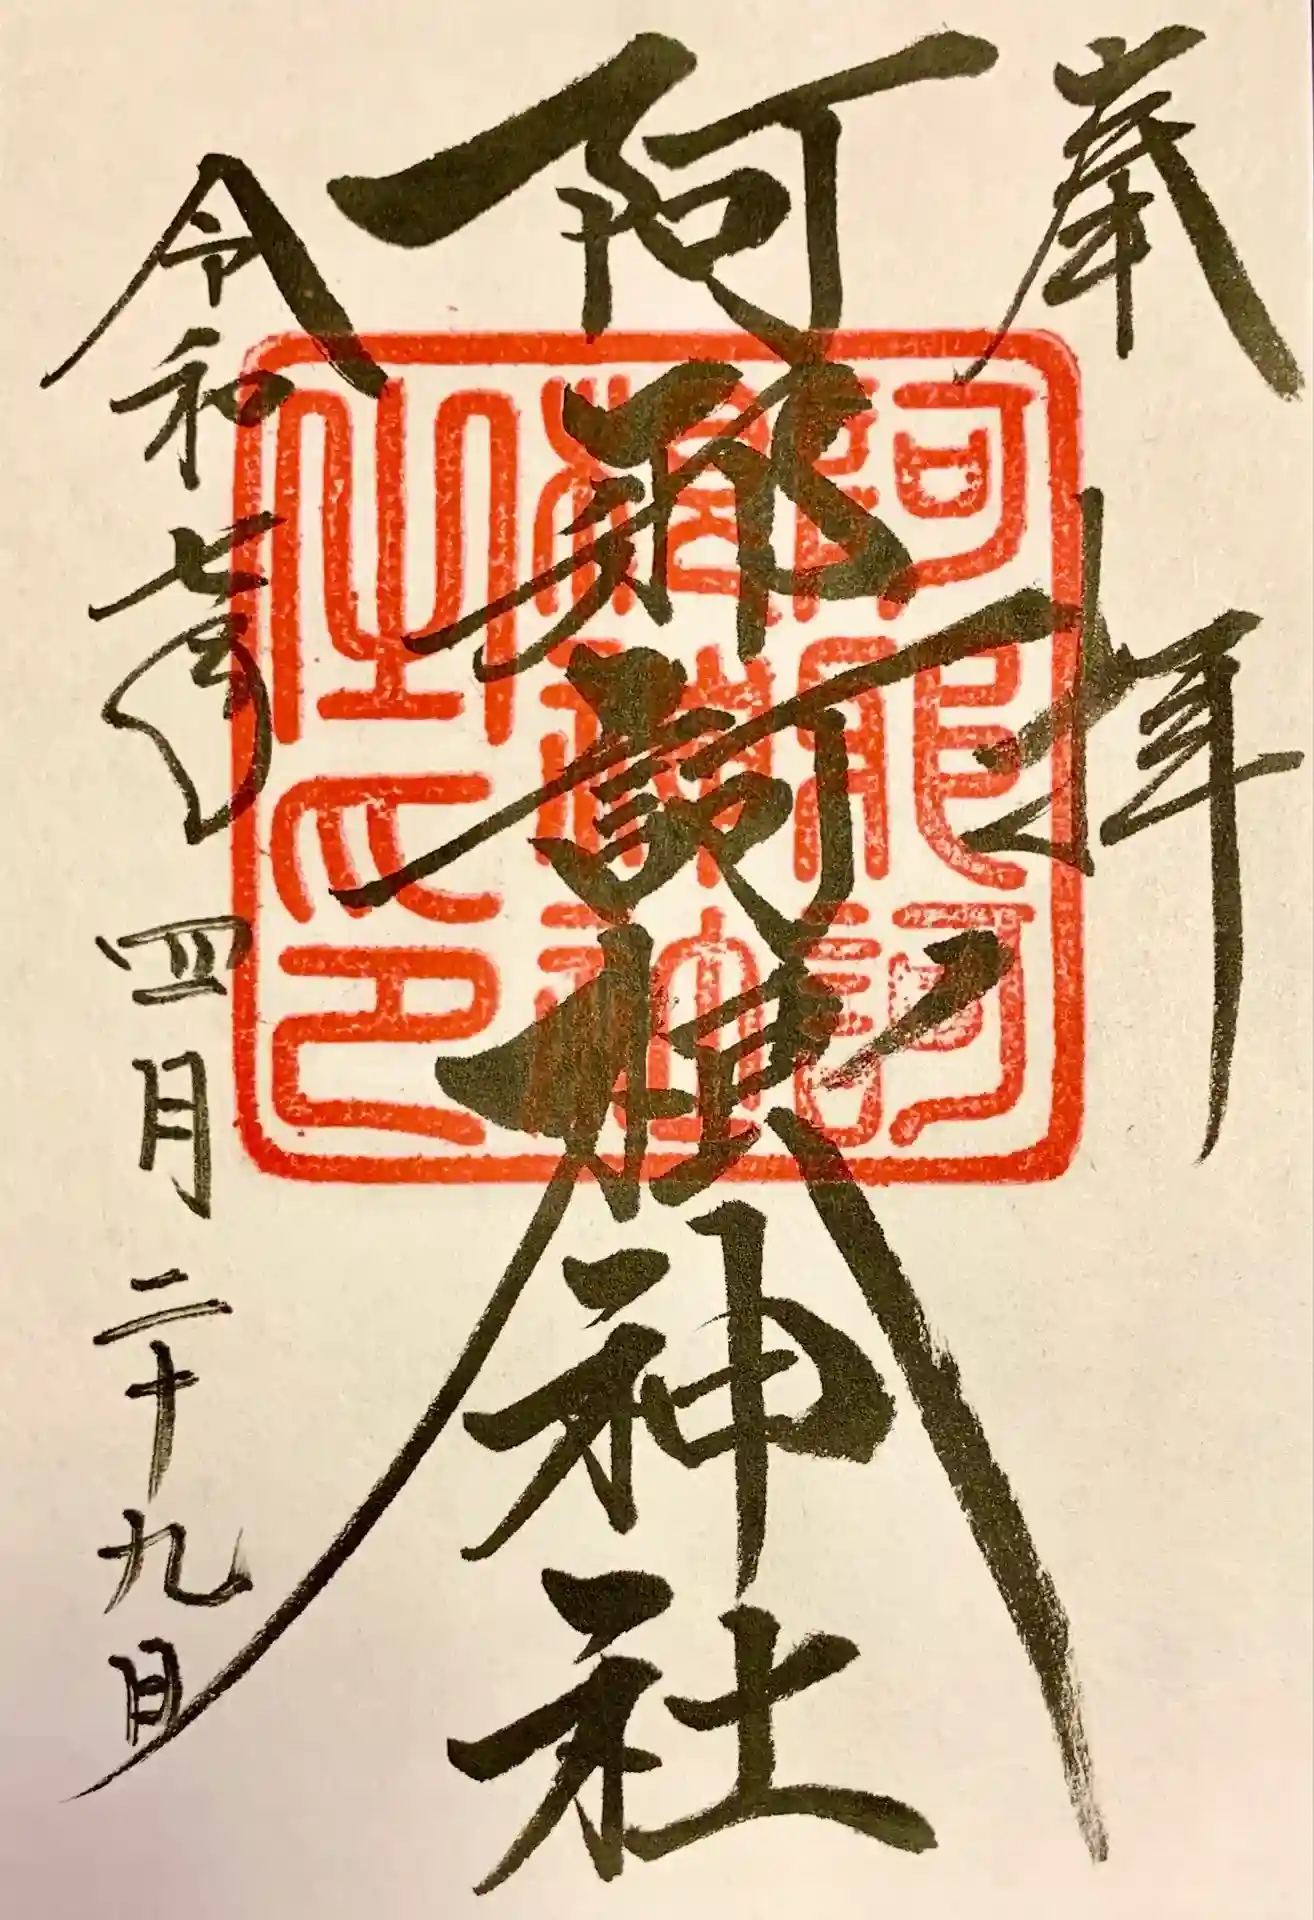 奉拝
阿邪訶根神社
令和七年四月二十九日
阿邪訶
之印